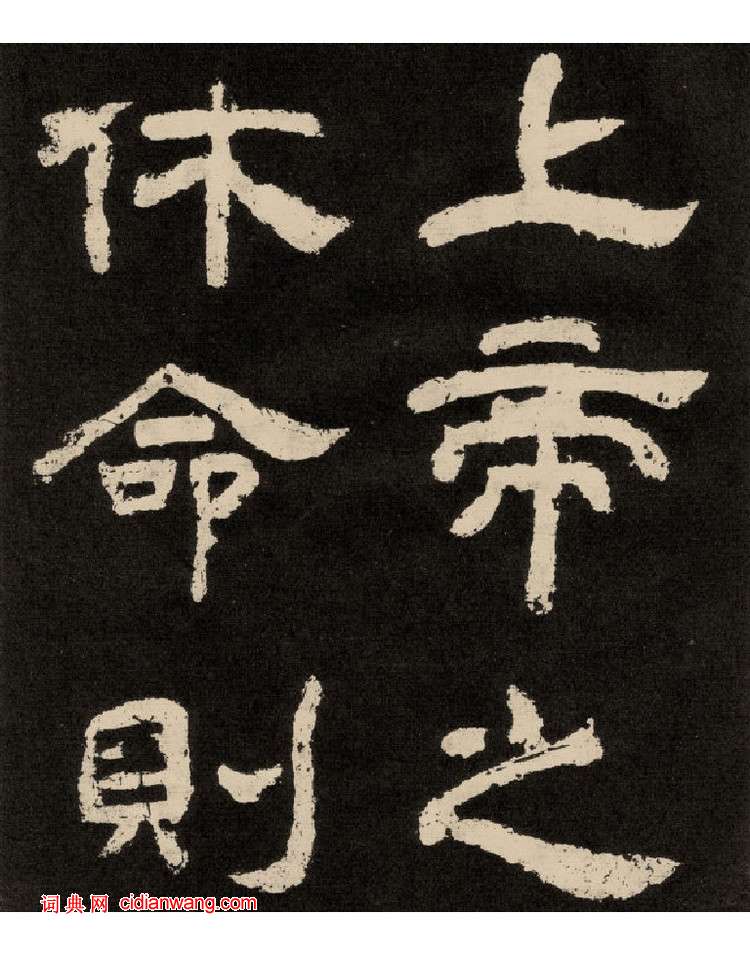 上帝之
休命則
词典网 cidianwang.com